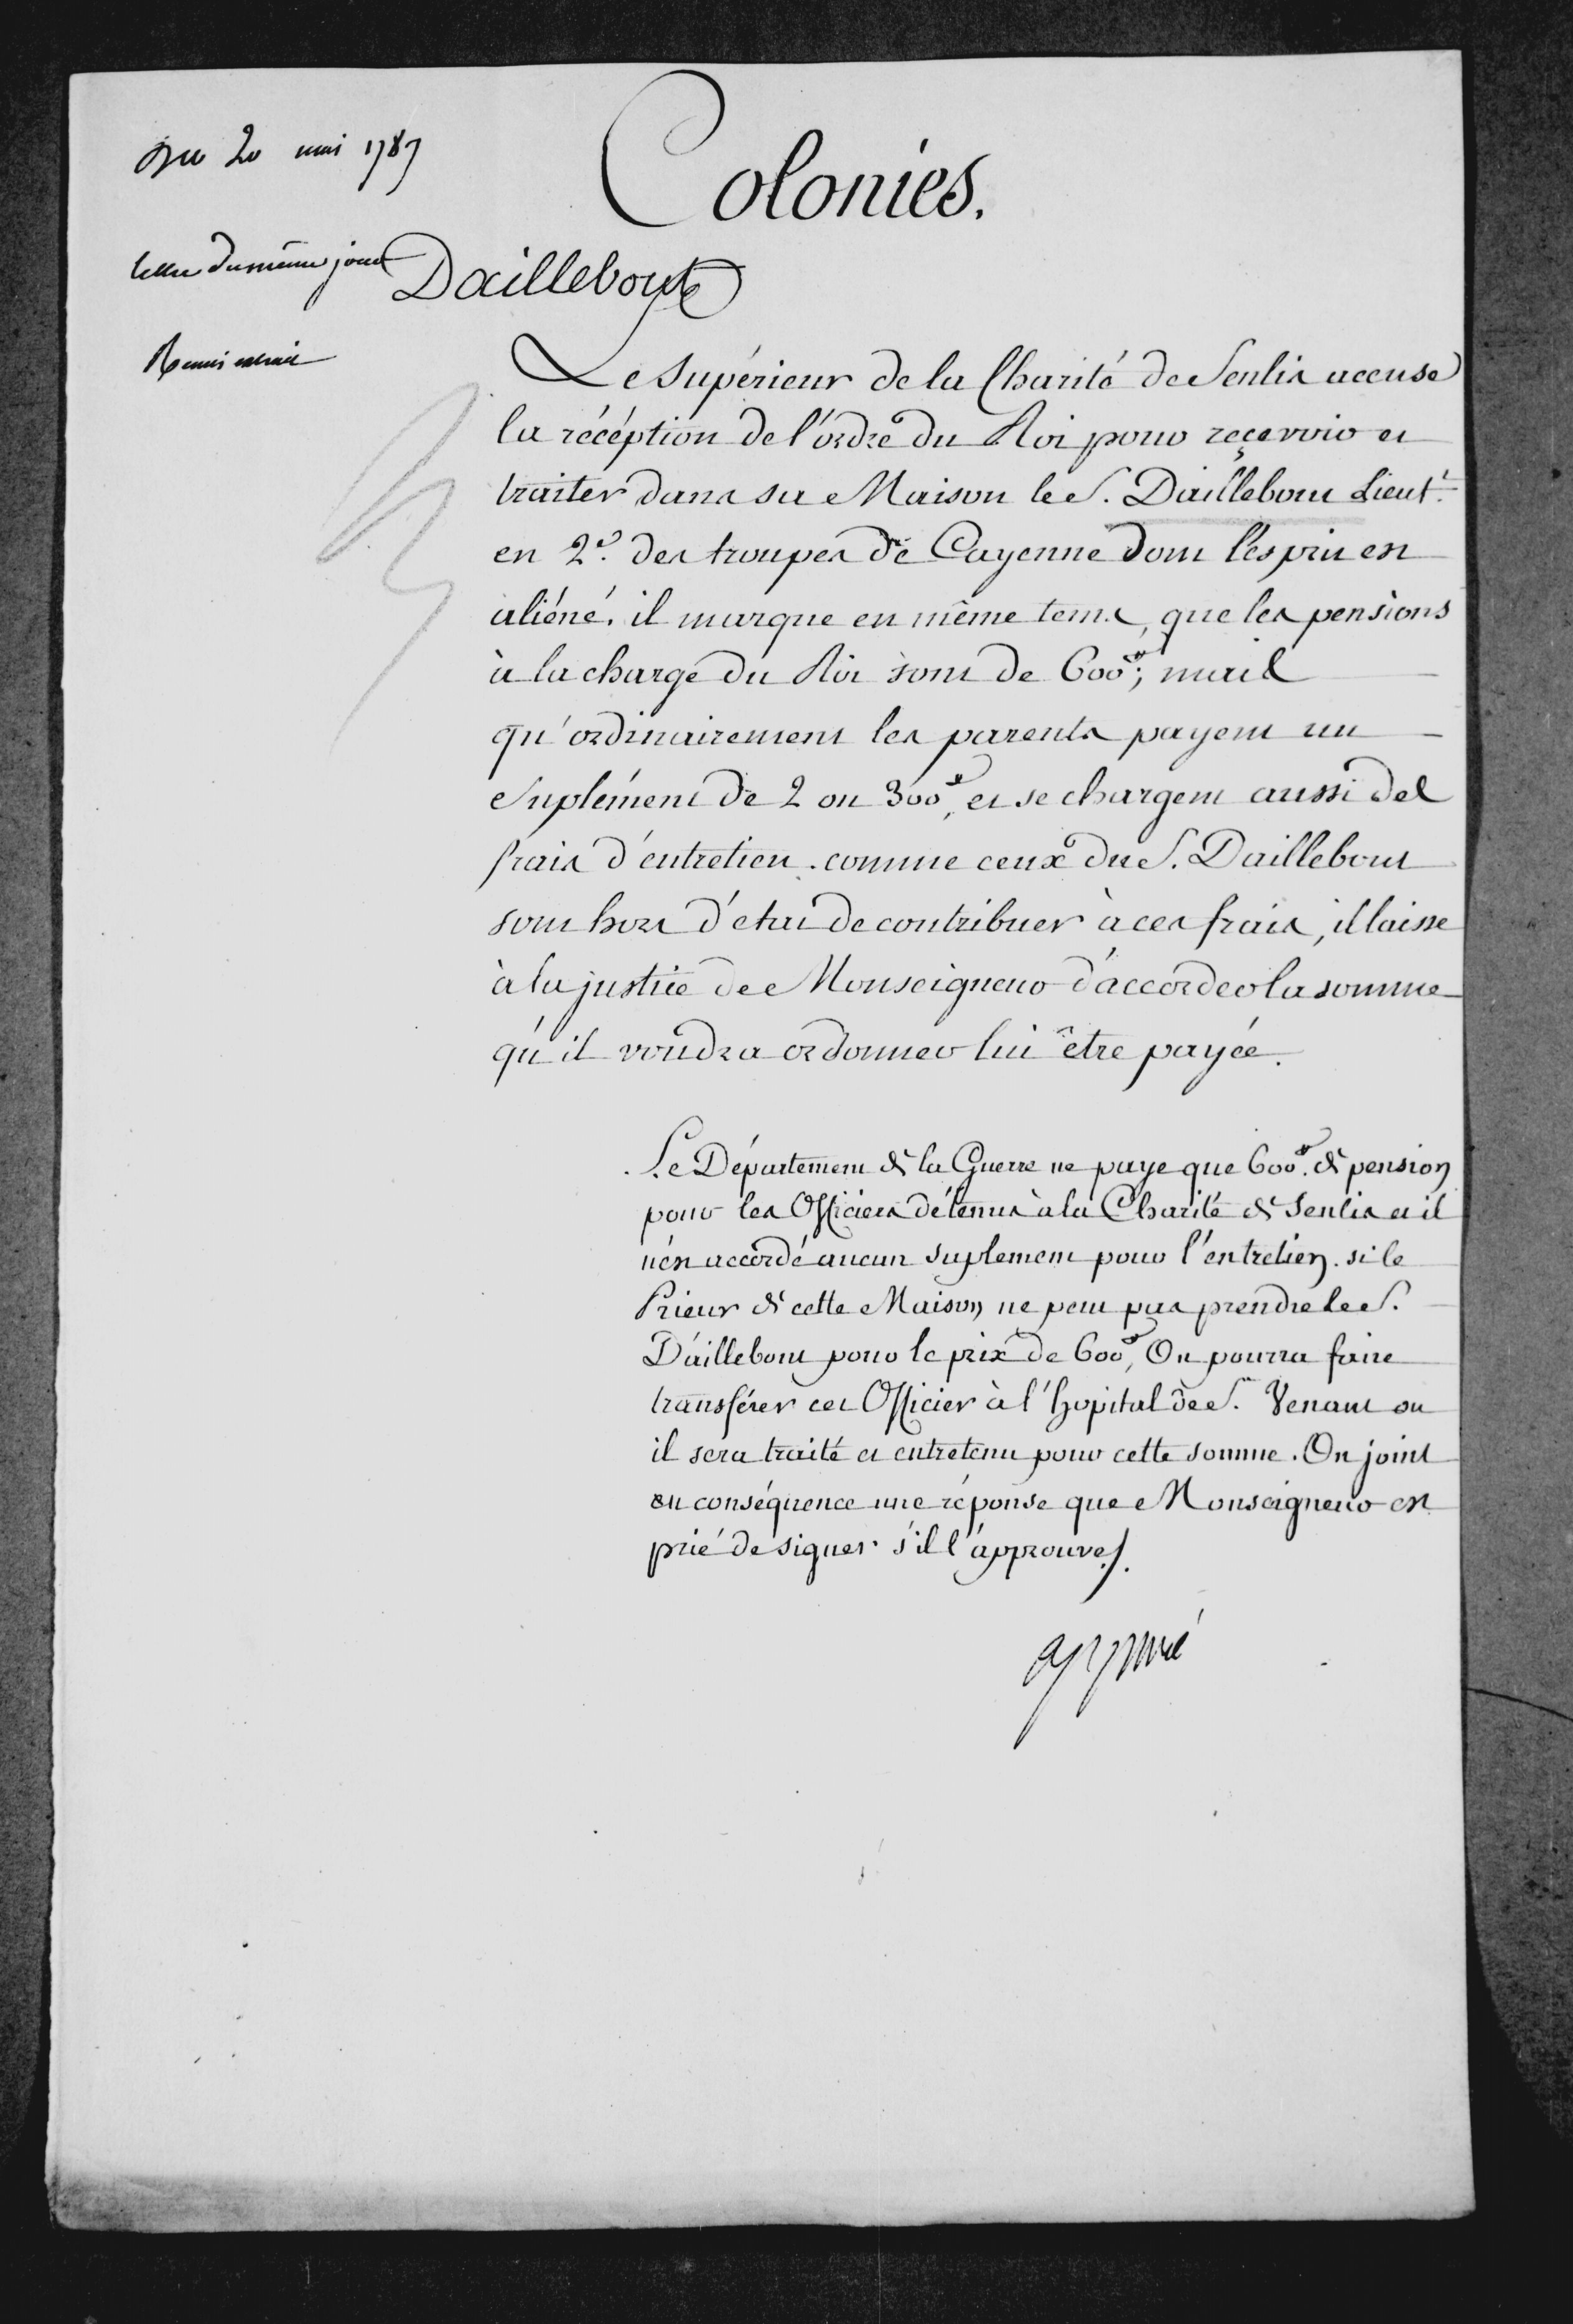 Du 20 mai 1787
Colonies.
lettre du même jour
Dailleboust
Remis extrait
Le Supérieur de la Charité de Senlis accuse
la récéption de l'ordre du Roi pour reçevoir et
traiter dans sa Maison le S. Daillebout Lieut.t
en 2.d des troupes de Cayenne dont l'esprit est
aliéné. il marque en même tems, que les pensions
à la charge du Roi sont de 600#; mais
qu'ordinairement les parents payent un
Suplément de 2 ou 300#, et se chargent aussi des
frais d'entretien. comme ceux du S. Daillebout
sont hors d'etat de contribuer à ces frais, il laisse
à la justice de Monseigneur d'accorder la somme
qu'il voudra ordonner lui être payée.
Le Département de la Guerre ne paye que 600#. de pension
pour les Officiers détenus à la Charité de Senlis et il
n'est accordé aucun suplement pour l'entretien. si le
Prieur de cette Maison ne peut pas prendre le S.
Daillebout pour le prix de 600#, On pourra faire
transférer cet Officier à l'hopital de S. Venant ou
il sera traité et entretenu pour cette somme. On joint
en conséquence une réponse que Monseigneur est
prié de signer s'il l'approuve./.
approuvé